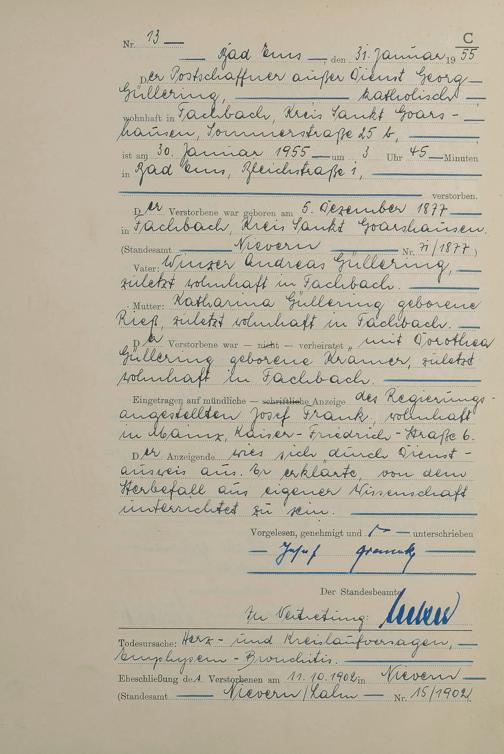 C
Nr. 13
Bad Ems, den 31. Januar 1955
Der Postschaffner außer Dienst Georg
Güllering, katholisch
wohnhaft in Fachbach, Kreis Sankt Goars-
hausen, Sommerstraße 25 b,
ist am 30. Januar 1955 um 3 Uhr 45 Minuten
in Bad Ems, Bleichstraße 1,
verstorben.
Der Verstorbene war geboren am 5. Dezember 1877
in Fachbach, Kreis Sankt Goarshausen.
(Standesamt Nievern Nr. 71/1877)
Vater: Winzer Andreas Güllering,
zuletzt wohnhaft in Fachbach.
Mutter: Katharina Güllering geborene
Rieß, zuletzt wohnhaft in Fachbach.
Der Verstorbene war — nicht — verheiratet mit Dorothea
Güllering geborene Kramer, zuletzt
wohnhaft in Fachbach.
Eingetragen auf mündliche — schriftliche Anzeige des Regierungs-
angestellten Josef Frank, wohnhaft
in Mainz, Kaiser-Friedrich-Straße 6.
Der Anzeigende wies sich durch Dienst-
ausweis aus. Er erklärte, von dem
Sterbefall aus eigener Wissenschaft
unterrichtet zu sein.
Vorgelesen, genehmigt und unterschrieben
Josef Frank
Der Standesbeamte
In Vertretung:
Todesursache: Herz- und Kreislaufversagen,
Emphysem-Bronchitis.
Eheschließung des Verstorbenen am 11.10.1902 in Nievern
(Standesamt Nievern/Lahn Nr. 15/1902)